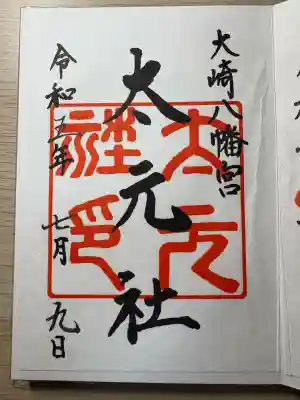 大崎八幡宮
太元社
令和五年 七月 九日
太元
社印